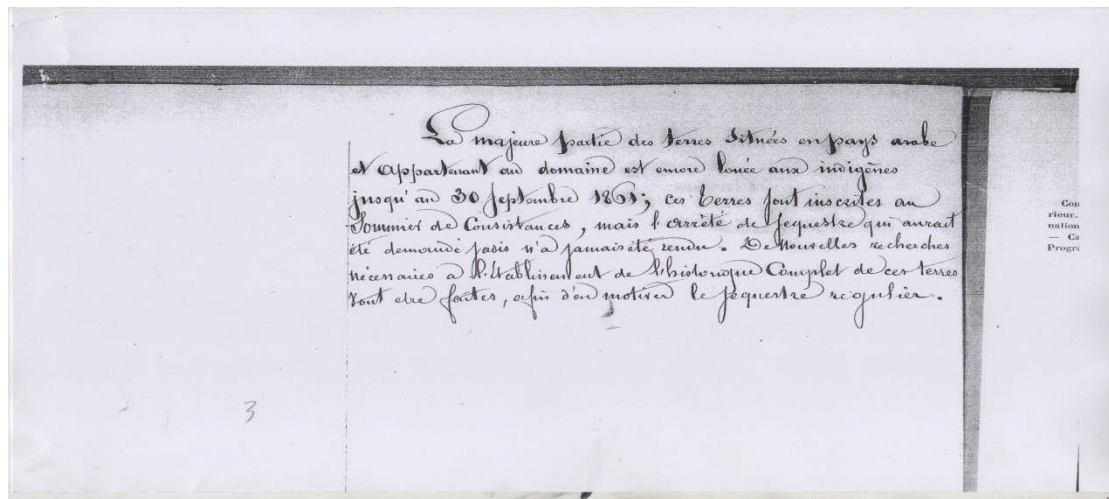 La majeure partie des terres situées en pays arabe
et appartenant au domaine est encore louée aux indigènes
jusqu'au 30 Septembre 1861; ces terres sont inscrites au
Sommier de Consistances, mais l'arrêté de Sequestre qui aurait
été demandé jadis n'a jamais été rendu. De nouvelles recherches
nécessaires à l'établissement de l'historique Complet de ces terres
vont etre faites, afin d'en motiver le Sequestre régulier.
3
Con
rieur.
nation
— Ca
Progré